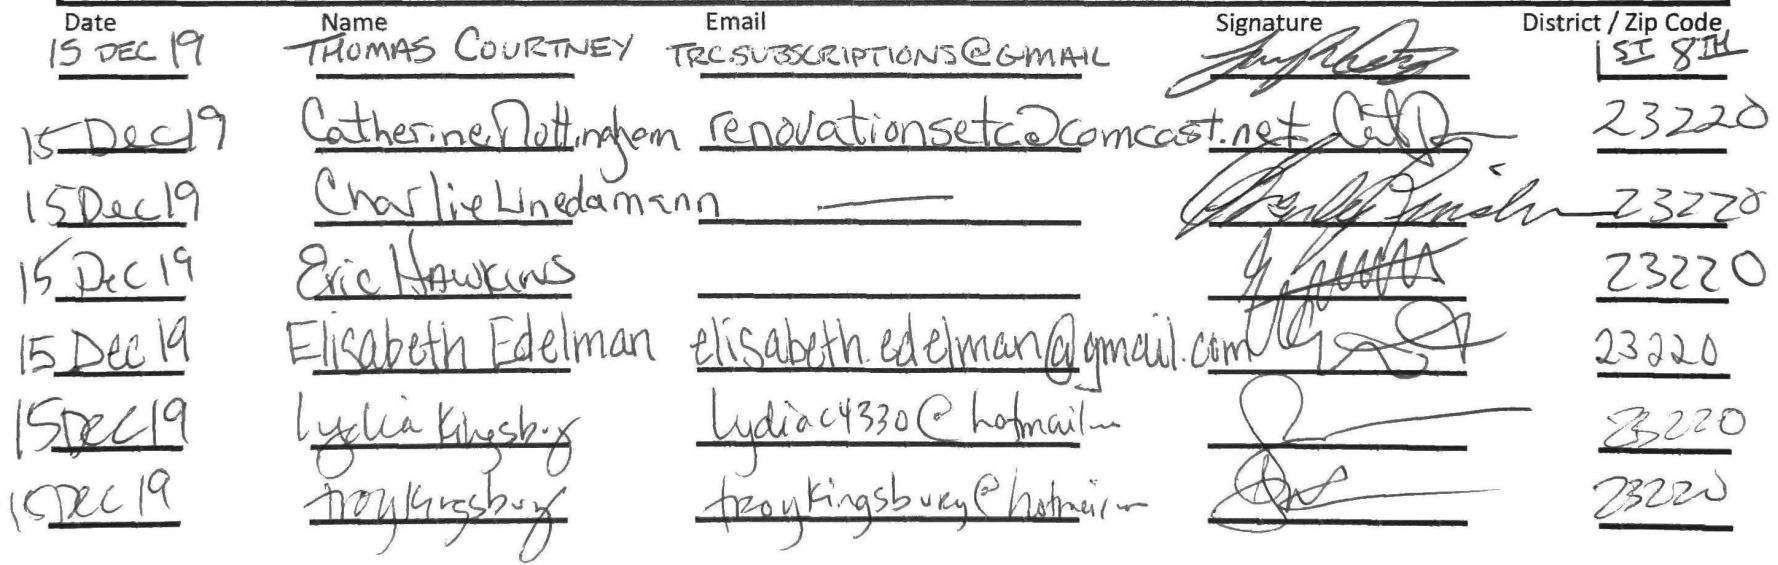 Date Name Email Signature District / Zip Code
15 DEC 19 THOMAS COURTNEY TRC.SUBSCRIPTIONS@GMAIL 1ST 8TH
15 Dec 19 Catherine Nottingham renovationsetc@comcast.net 23220
15 Dec 19 Charlie Linedamann — 23220
15 Dec 19 Eric Hawkins 23220
15 Dec 19 Elisabeth Edelman elisabeth.edelman@gmail.com 23220
15 Dec 19 Lydia Kingsbury lydiac4330@hotmail 23220
15 Dec 19 troy Kingsbury troykingsbury@hotmail 23220